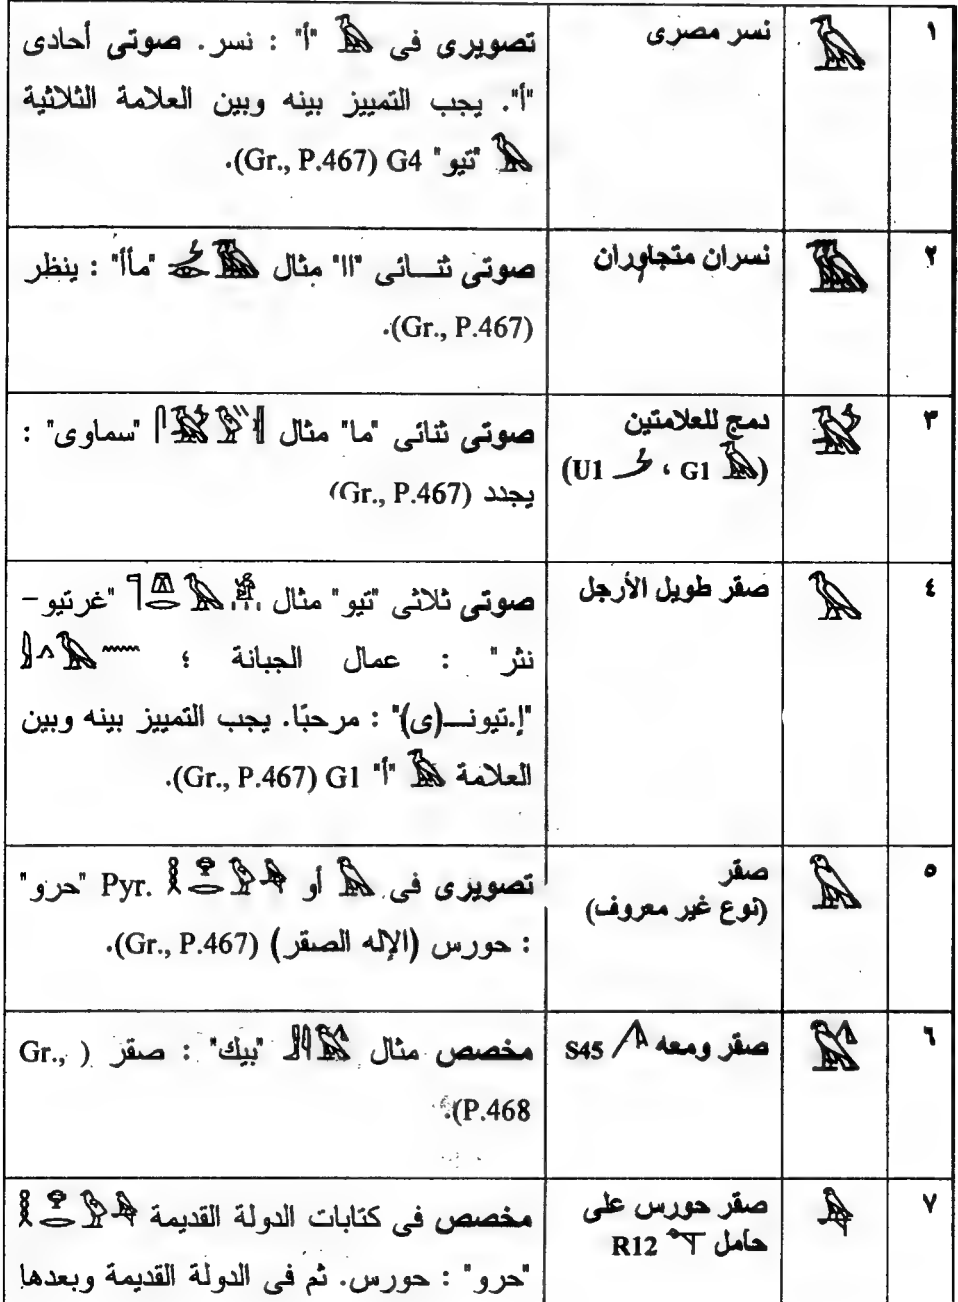 ١ 𓄿 نسر مصرى تصويرى فى 𓄿 "أ" : نسر. صوتى أحادى
"أ". يجب التمييز بينه وبين العلامة الثلاثية
𓅂 "تيو" G4 (Gr., P.467).
٢ 𓅀 نسران متجاوران صوتى ثنائى "اا" مثال 𓅀 "مأأ" : ينظر
(Gr., P.467).
٣ 𓅁 دمج للعلامتين صوتى ثنائى "ما" مثال "سماوى" :
(𓄿 G1 ، 𓌳 U1) يجدد (Gr., P.467)
٤ 𓅂 صقر طويل الأرجل صوتى ثلاثى "تيو" مثال "غرتيو –
نثر" : عمال الجبانة ؛
"إ.تيونـ(ى)" : مرحبًا. يجب التمييز بينه وبين
العلامة 𓄿 "أ" G1 (Gr., P.467).
٥ 𓅃 صقر تصويرى فى 𓅃 أو Pyr. "حرو"
(نوع غير معروف) : حورس (الإله الصقر) (Gr., P.467).
٦ 𓅄 صقر ومعه 𓌅 S45 مخصص مثال "بيك" : صقر ( Gr.,
P.468).
٧ 𓅆 صقر حورس على مخصص فى كتابات الدولة القديمة
حامل 𓊾 R12 "حرو" : حورس. ثم فى الدولة القديمة وبعدها